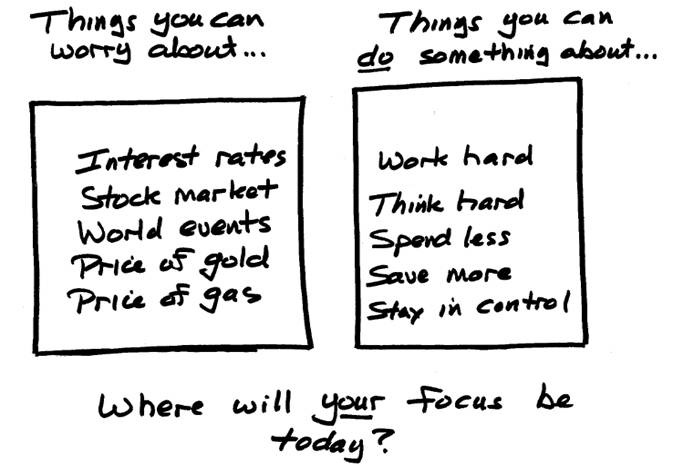 Things you can
worry about...
Things you can
do something about...
Interest rates
Stock market
World events
Price of gold
Price of gas
Work hard
Think hard
Spend less
Save more
Stay in control
Where will your focus be
today?